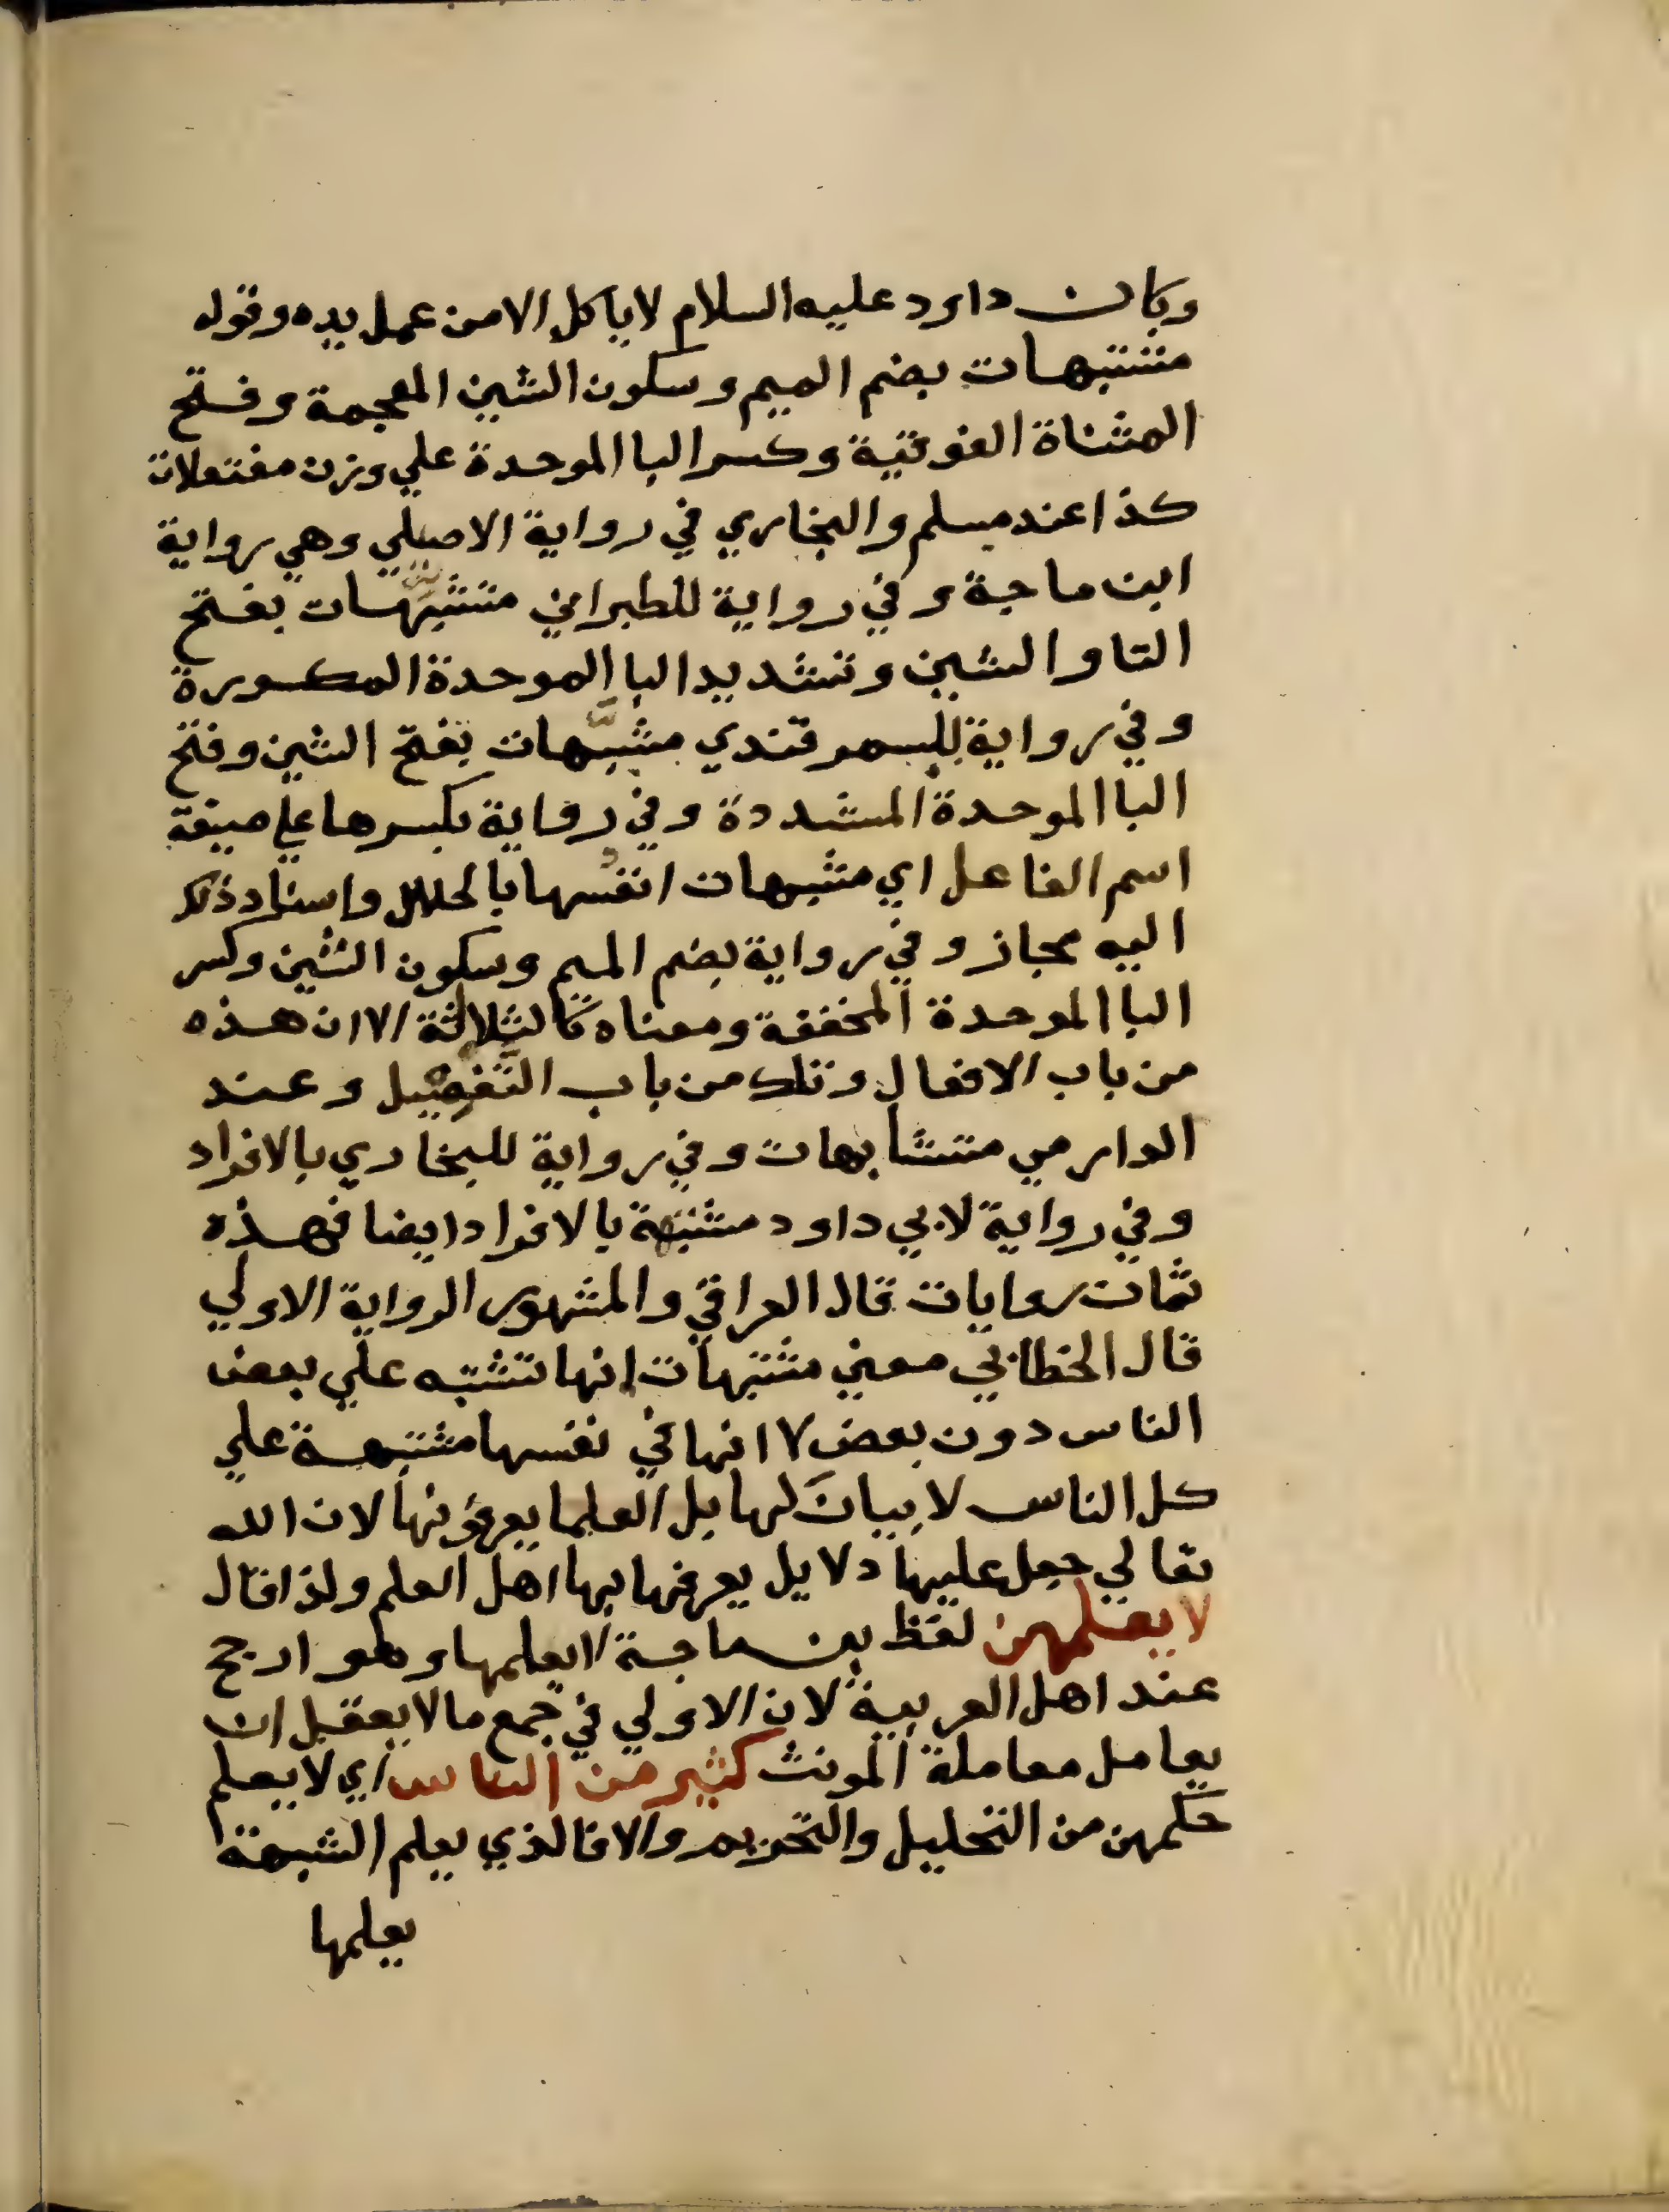 وكان داود عليه السلام لا ياكل الا من عمل يده وقوله
مشتبهات بضم الميم وسكون الشين المعجمة وفتح
المثناة الفوقية وكسر البا الموحدة علي وزن مفتعلات
كذا عند مسلم والبخاري في رواية الاصيلي وهي رواية
ابن ماجة وفي رواية للطبراني متشبهات بفتح
التا والشين وتشديد البا الموحدة المكسورة
وفي رواية للسمرقندي مشبَّهات بفتح الشين وفتح
البا الموحدة المشددة وفي رواية بكسرها علي صيغة
اسم الفاعل اي مشبهات انفسها بالحلال واسناد ذلك
اليه مجاز وفي رواية بضم الميم وسكون الشين وكسر
البا الموحدة المخففة ومعناه كالثلاثة الا ان هذه
من باب الافعال وتلك من باب التفعيل وعند
الدارمي متشابهات وفي رواية للبخاري بالافراد
وفي رواية لابي داود مشتبهة بالافراد ايضا فهذه
ثمان روايات قال العراقي والمشهور الرواية الاولي
قال الخطابي معني مشتبهات انها تشتبه علي بعض
الناس دون بعض لا انها في نفسها مشتبهة علي
كل الناس لا بيانَ لها بل العلما يعرفونها لان الله
تعالي جعل عليها دلايل يعرفها بها اهل العلم ولذا قال
لا يعلمهن لفظ بن ماجة لا يعلمها وهو ارجح
عند اهل العربية لان الاولي في جمع ما لا يعقل ان
يعامل معاملة المونث كثير من الناس اي لا يعلم
حكمهن من التحليل والتحريم والا فالذي يعلم الشبهة
يعلمها